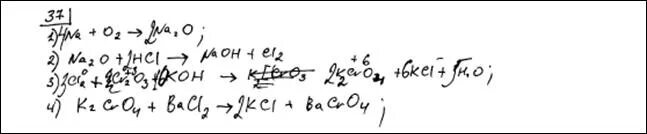 37
1) 4Na + O₂ → 2Na₂O ;
2) Na₂O + HCl → NaOH + Cl₂
3) 3Cl₂ + Cr₂O₃ + 10KOH → 2K₂CrO₄ + 6KCl + 5H₂O ;
4) K₂CrO₄ + BaCl₂ → 2KCl + BaCrO₄ ;